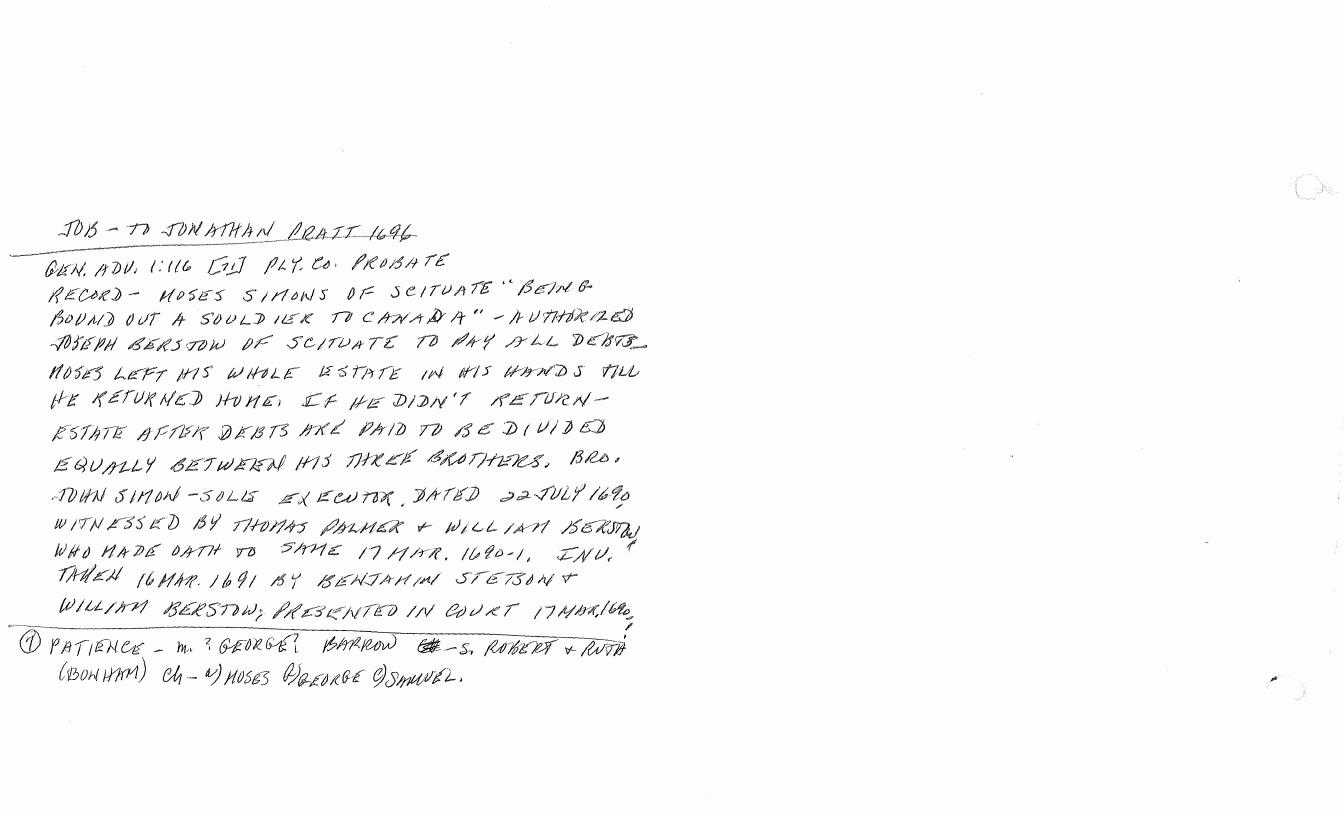 JOB - TO JONATHAN PRATT 1696
GEN. ADV. 1:116 [71] PLY. CO. PROBATE
RECORD - MOSES SIMONS OF SCITUATE "BEING
BOUND OUT A SOULDIER TO CANADA" - AUTHORIZED
JOSEPH BERSTOW OF SCITUATE TO PAY ALL DEBTS
MOSES LEFT HIS WHOLE ESTATE IN HIS HANDS TILL
HE RETURNED HOME. IF HE DIDN'T RETURN -
ESTATE AFTER DEBTS ARE PAID TO BE DIVIDED
EQUALLY BETWEEN HIS THREE BROTHERS. BRO.
JOHN SIMON - SOLE EXECUTOR. DATED 22 JULY 1690,
WITNESSED BY THOMAS PALMER + WILLIAM BERSTOW,
WHO MADE OATH TO SAME 17 MAR. 1690-1. INV.
TAKEN 16 MAR. 1691 BY BENJAMIN STETSON +
WILLIAM BERSTOW; PRESENTED IN COURT 17 MAR. 1690
(7) PATIENCE - m. ? GEORGE? BARROW - S. ROBERT + RUTH
(BONHAM) Ch - a) MOSES b) GEORGE c) SAMUEL.